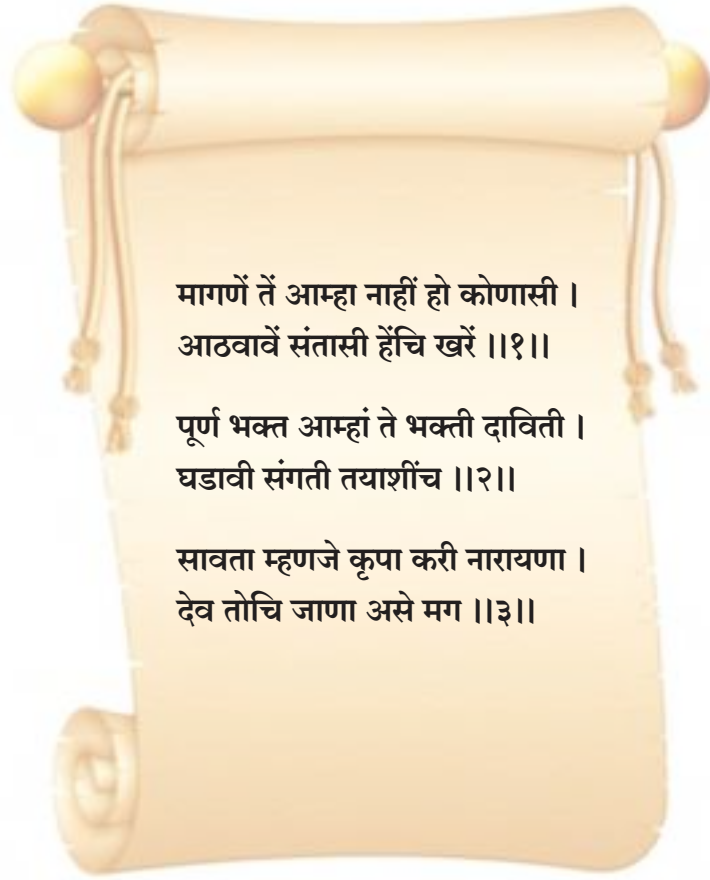 मागणें तें आम्हा नाहीं हो कोणासी ।
आठवावें संतासी हेंचि खरें ।।१।।
पूर्ण भक्त आम्हां ते भक्ती दाविती ।
घडावी संगती तयाशींच ।।२।।
सावता म्हणजे कृपा करी नारायणा ।
देव तोचि जाणा असे मग ।।३।।